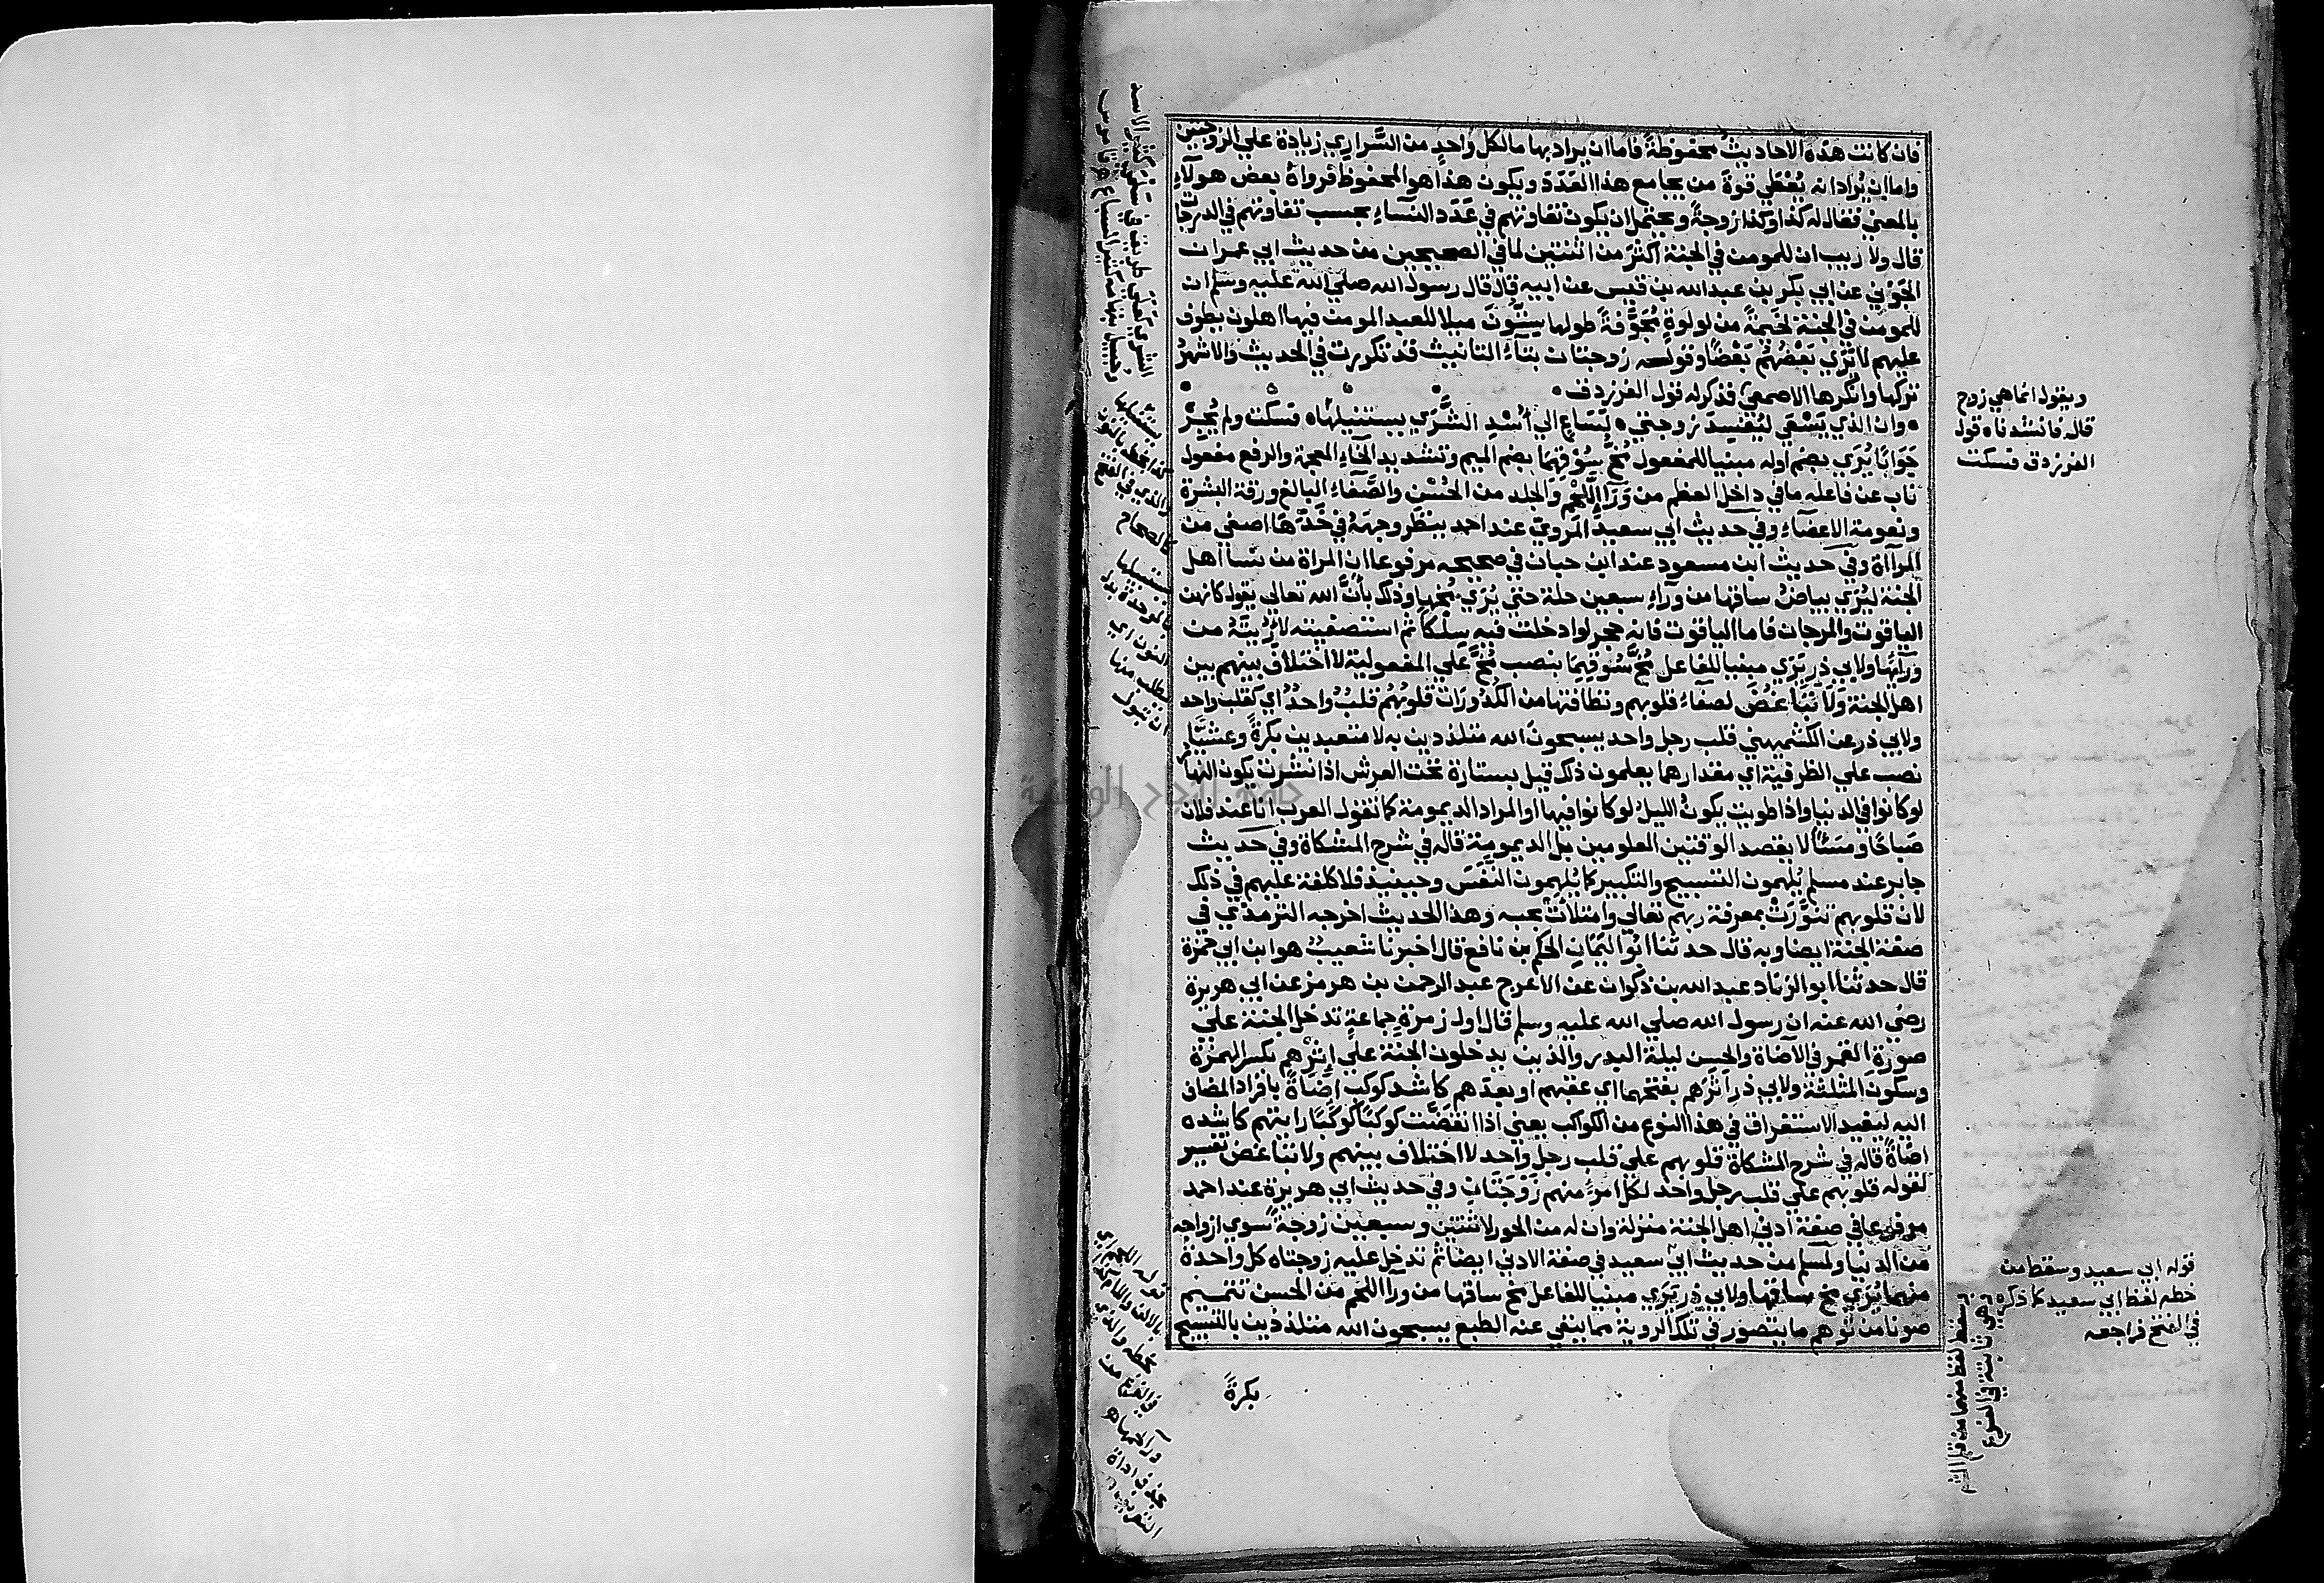 فان كانت هذه الاحاديث محفوظة فاما ان يراد بها مالكل واحد من السَّراري زيادة علي الزوجتين
واما ان يُراد انه يُعْطَي قوة من يجامع هذا العَدَدَ ويكون هذا هو المحفوظ فرواه بعض هولآءِ
بالمعني فقال له كذا وكذا زوجةً ويحتمل ان يكون تفاوتهم في عَدَد النسآءِ بحسب تفاوتهم في الدرجات
قال ولا ريب ان للمومن في الجنة اكثر من اثنتين لما في الصحيحين من حديث ابي عمران
الجَوْني عن ابي بكر بن عبد الله بن قيس عن ابيه قال قال رسول الله صلي الله عليه وسلم ان
للمومن في الجنة لخَيمةً من لولوةٍ مُجَوَّفةً طولها سِتُّونَ ميلا للعبد المومن فيها اهلون يطوف
عليهم لا يَرَي بَعْضُهُمْ بَعْضًا وقوله زوجتان بتآء التانيث قد تكررت في الحديث والاشهرُ
تركها وانكرها الاصمعيُّ فذكر له قول الفرزدق
وان الذي يَسْعَي ليُفسِدَ زوجتي لَسَاعٍ الي أُسْدِ الشَّرَي يستنيلها فسكت ولم يُحِرْ
جَوَابًا يُرَي بضم اوله مبنيا للمفعول مُخُّ سُوْقِهِمَا بضم الميم وتشديد الخآءِ المعجمة والرفع مفعول
ناب عن فاعله ما في داخل العظم من وَرَآءِ اللَّحْمِ والجلد من الحُسْنِ والصَّفآءِ البالغ ورقة البشرة
ونعومة الاعضآءِ وفي حديث ابي سعيد المَروي عند احمد ينظر وجهَهُ في خَدِّهَا اصفي من
المرآاة وفي حديث ابن مسعود عند ابن حبان في صحيحه مرفوعا ان المراة من نسا اهل
الجنة ليُرَي بياضُ ساقها من ورآءِ سبعين حلة حتي يُرَي مُخها وذلك بأنَّ الله تعالي يقول كانهن
الياقوت والمرجان فاما الياقوت فانه حجر لو ادخلت فيه سِلْكًا ثم استصفيته لأُرِيْتَهُ من
ورآئه ولابي ذر يَرَي مبنيا للفاعل مُخَّ سُوقِهِمَا بنصب مُخَّ علي المفعولية لا اختلاف بينهم بين
اهل الجنة ولا تباغُضَ لصفآءِ قلوبهم ونظافتها من الكُدُورَات قلوبُهُم قلبٌ واحدٌ اي كقلب واحد
ولابي ذر عن الكشميهني قلب رجل واحد يسبحون الله متلذذين به لا متعبدين بكرةً وعشيًّا
نصب علي الظرفية اي مقدارهما يعلمون ذلك قيل بستارة تحت العرش اذا نشرت يكون النهار
لو كانوا في الدنيا واذا طويت يكون الليل لو كانوا فيها او المراد الديمومة كما تقول العرب انا عند فلان
صَباحًا ومَسَآءً لا يقصد الوقتين المعلومين بل الديمومة قاله في شرح المشكاة وفي حديث
جابر عند مسلم يُلهمون التسبيح والتكبير كما يُلهمون النفَسَ وحينيذ فلا كلفة عليهم في ذلك
لان قلوبهم تنوَّرَتْ بمعرفة ربهم تعالي وامتلأتْ بحبه وهذا الحديث اخرجه الترمذي في
صفة الجنة ايضا وبه قال حدثنا ابو اليَمَانِ الحكم بن نافع قال اخبرنا شعيبٌ هو ابن ابي حمزة
قال حدثنا ابو الزناد عبد الله بن ذكوان عن الاعرج عبد الرحمن بن هرمز عن ابي هريرة
رضي الله عنه ان رسول الله صلي الله عليه وسلم قال اول زمرة جماعة تدخل الجنة علي
صورة القمر في الاضاة والحسن ليلة البدر والذين يدخلون الجنة علي إِثْرِهِم بكسر الهمزة
وسكون المثلثة ولابي ذر أَثَرِهم بفتحهما اي عقبهم او بعدهم كاشد كوكب اضاةً بافراد المضاف
اليه ليفيد الاستغراق في هذا النوع من الكواكب يعني اذا انقضَّت كوكبًا كوكبًا رايتهم كاشده
اضاةً قاله في شرح المشكاة قلوبهم علي قلب رجل واحد لا اختلاف بينهم ولا تباغض تفسير
لقوله قلوبهم علي قلب رجل واحد لكل امرءٍ منهم زَوْجَتَانِ وفي حديث ابي هريرة عند احمد
مرفوعا في صفة ادني اهل الجنة منزلة وان له من الحور لاثنتين وسبعين زوجةً سوي ازواجه
من الدنيا ولمسلم من حديث ابي سعيد في صفة الادني ايضا ثم تدخل عليه زوجتاه كل واحدة
منهما يُرَي مخ ساقها ولابي ذر يَرَي مبنيا للفاعل مخ ساقها من ورآ اللحم من الحسن تتميم
صونا من توهم ما يتصور في تلك الروية مما ينفي عنه الطبع يسبحون الله متلذذين بالتسبيح
بكرةً
ويقول انما هي زوج
قال فانشدناه قول
الفرزدق فسكت
قوله ابي سعيد وسقط من
خطه لفظ ابي سعيد كما ذكره
في الفتح فراجعه
وسقط لفظ منهما من قلم الش
وهي ثابتة في الفروع
يستنيلها
كذا بخطه بالنون
والذي في الفتح
كالصحاح
يستبيلها
بالموحدة بدل
النون اي
يطلب منها
ان تبول